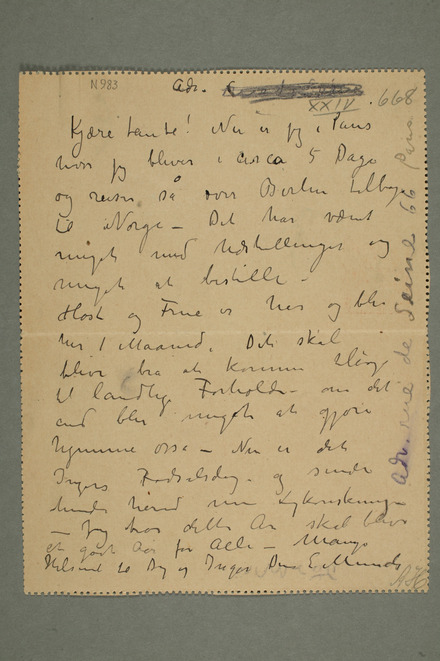 N 983
Adr.
XXIV. 668
Kjære tante! Nu er jeg i Paris
hvor jeg bliver i circa 5 Dage
og reiser så over Berlin tilbage
til Norge – Det har været
meget med Udstillinger og
meget at bestille –
Høst og Frue er her og blir
her 1 Maaned. Det skal
blive bra at komme
til landlige Forholde – om det
end blir meget at gjøre
hjemme også – Nu er det
Ingers Fødselsdag – og sender
hende herved min Lykønskning
– Jeg tror dette År skal blive
et godt År for Alle – Mange
Hilsener til Dig og Inger Din E. Munch
Adr. rue de Seine 66 Paris